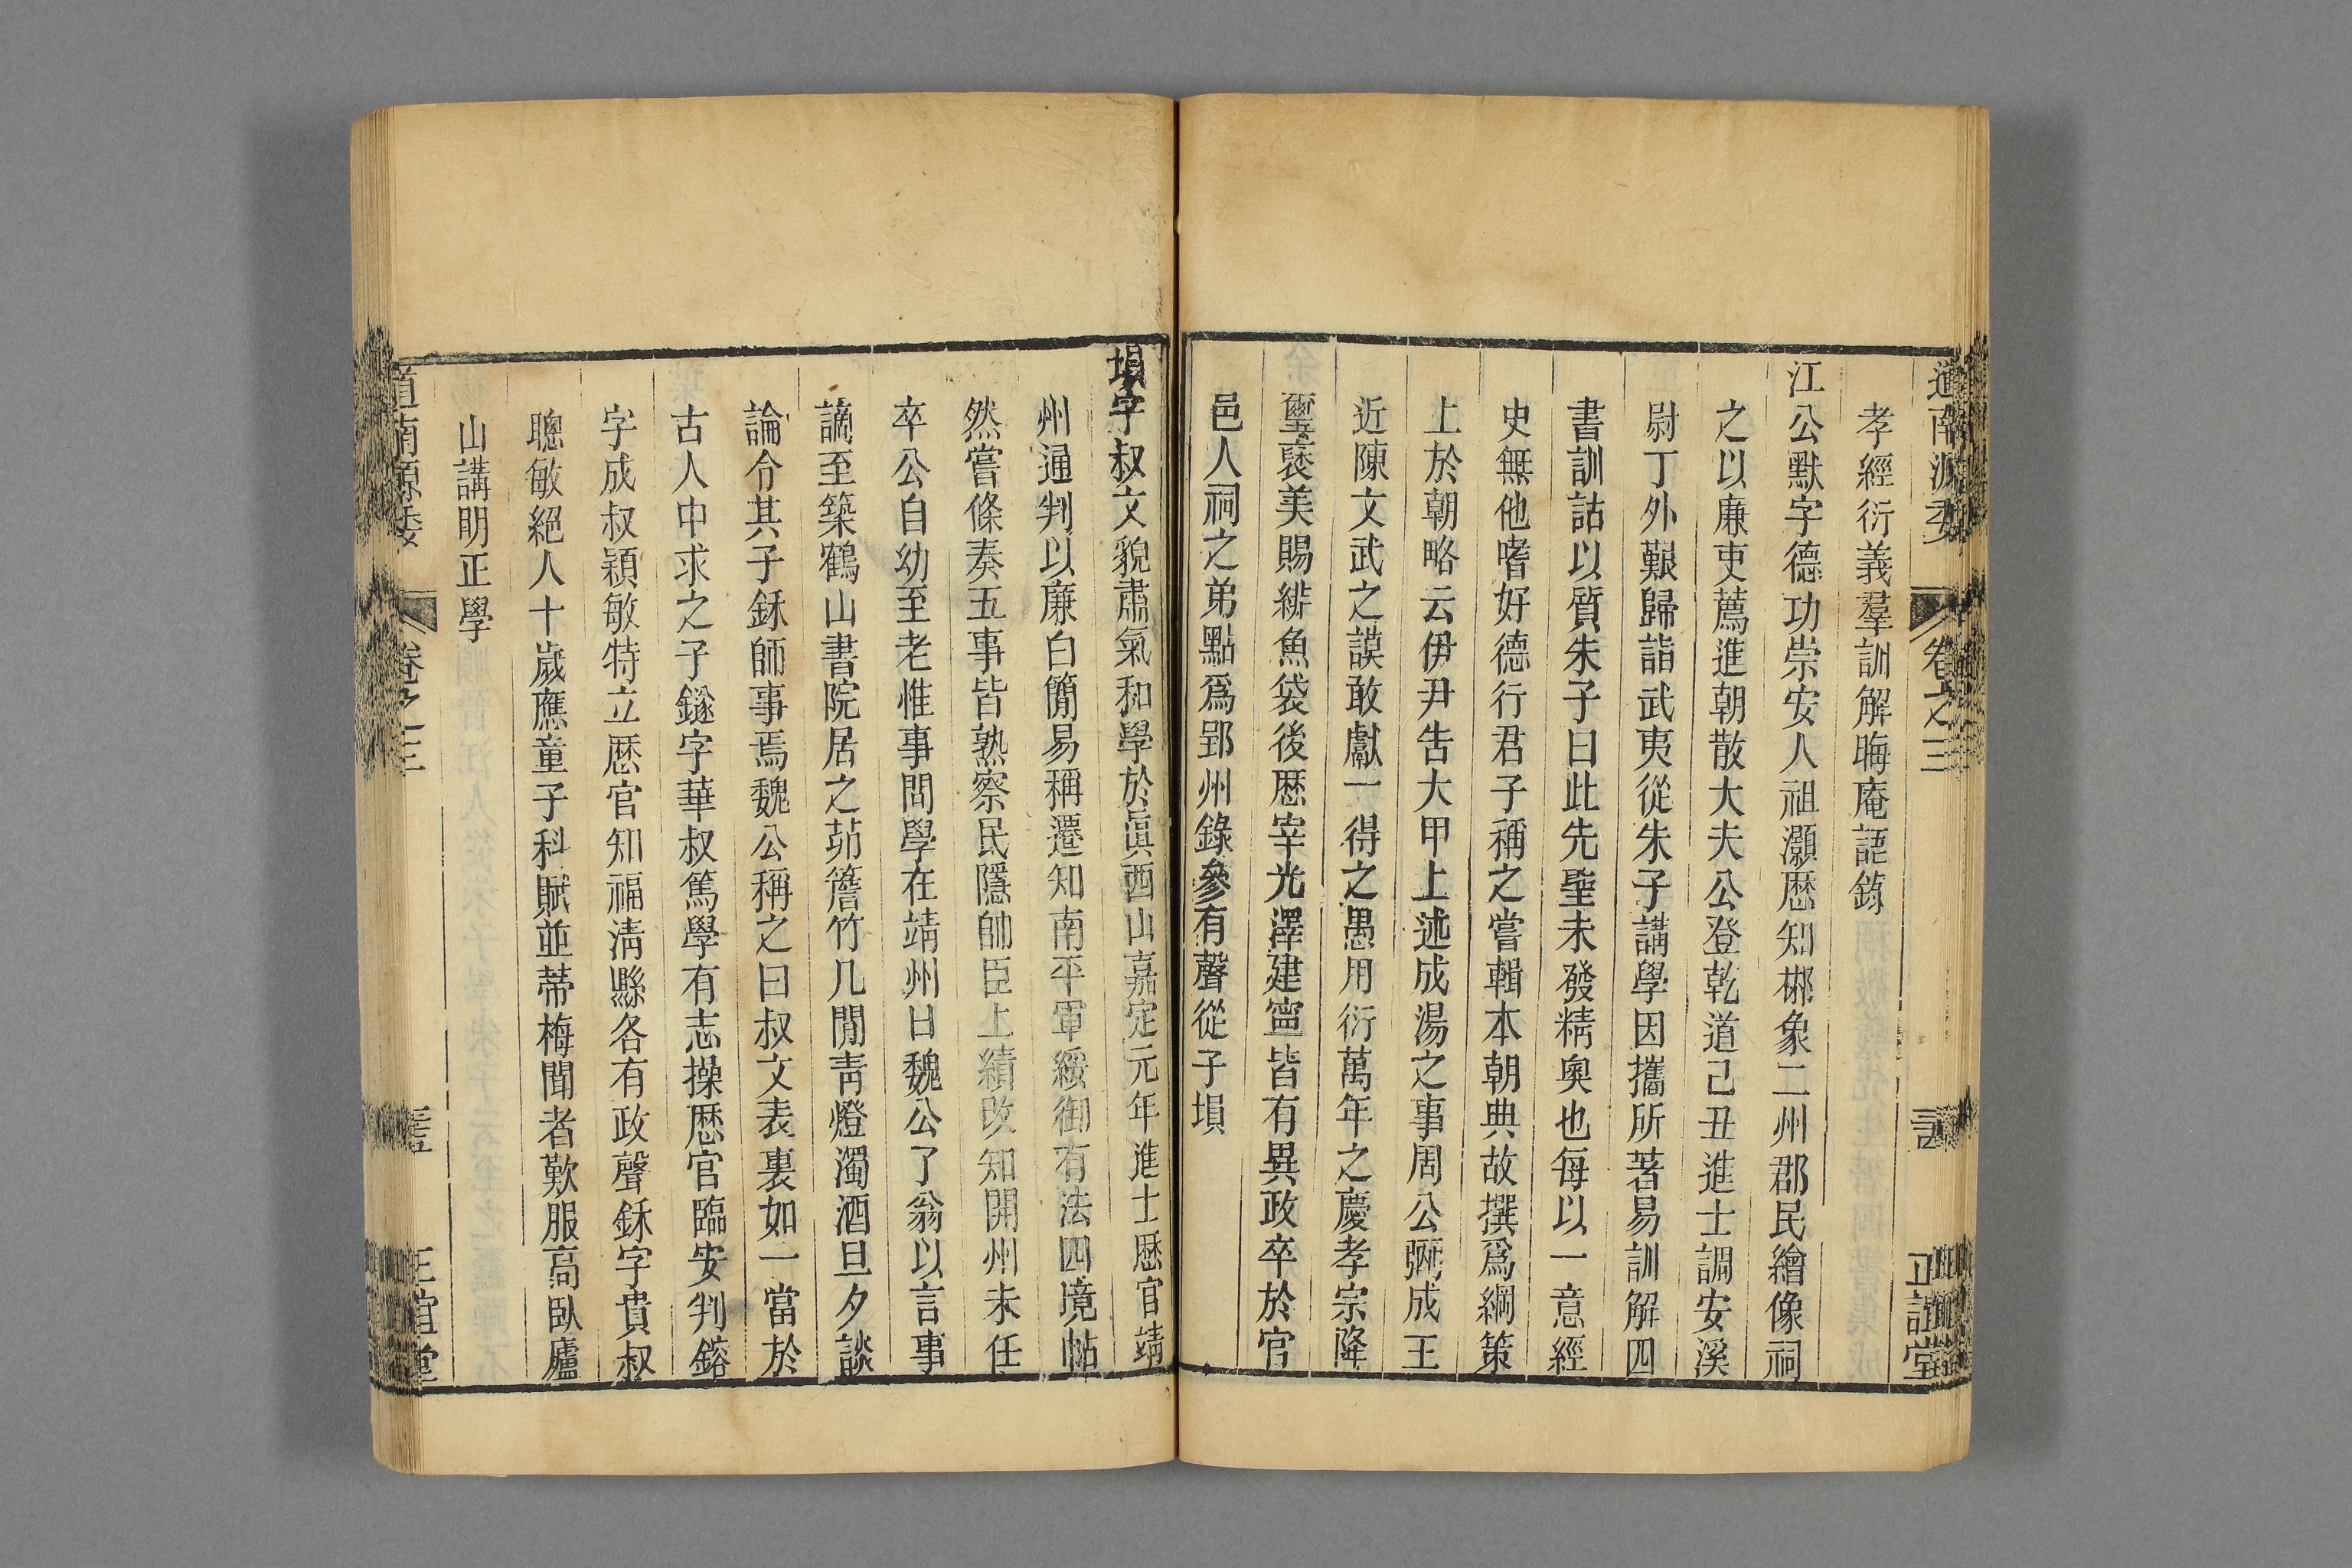 道南源委 卷之三 正誼堂
孝經衍義羣訓解晦庵語錄
江公默字德功崇安人祖灝歷知郴象二州郡民繪像祠
之以廉吏薦進朝散大夫公登乾道己丑進士調安溪
尉丁外艱歸詣武夷從朱子講學因攜所著易訓解四
書訓詁以質朱子曰此先聖未發精奧也每以一意經
史無他嗜好德行君子稱之嘗輯本朝典故撰爲綱策
上於朝略云伊尹告大甲上述成湯之事周公彌成王
近陳文武之謨敢獻一得之愚用衍萬年之慶孝宗降
璽褒美賜緋魚袋後歷宰光澤建寧皆有異政卒於官
邑人祠之弟點爲郢州錄參有聲從子塤
塤字叔文貌肅氣和學於眞西山嘉定元年進士歷官靖
州通判以廉白簡易稱遷知南平軍綏御有法四境帖
然嘗條奏五事皆熟察民隱帥臣上績改知開州未任
卒公自幼至老惟事問學在靖州日魏公了翁以言事
謫至築鶴山書院居之茆簷竹几閒靑燈濁酒旦夕談
論令其子鉌師事焉魏公稱之曰叔文表裏如一當於
古人中求之子鐩字華叔篤學有志操歷官臨安判鎔
字成叔穎敏特立歷官知福淸縣各有政聲鉌字貴叔
聰敏絕人十歲應童子科賦並蒂梅聞者歎服高臥廬
山講明正學
道南源委 卷之三 正誼堂